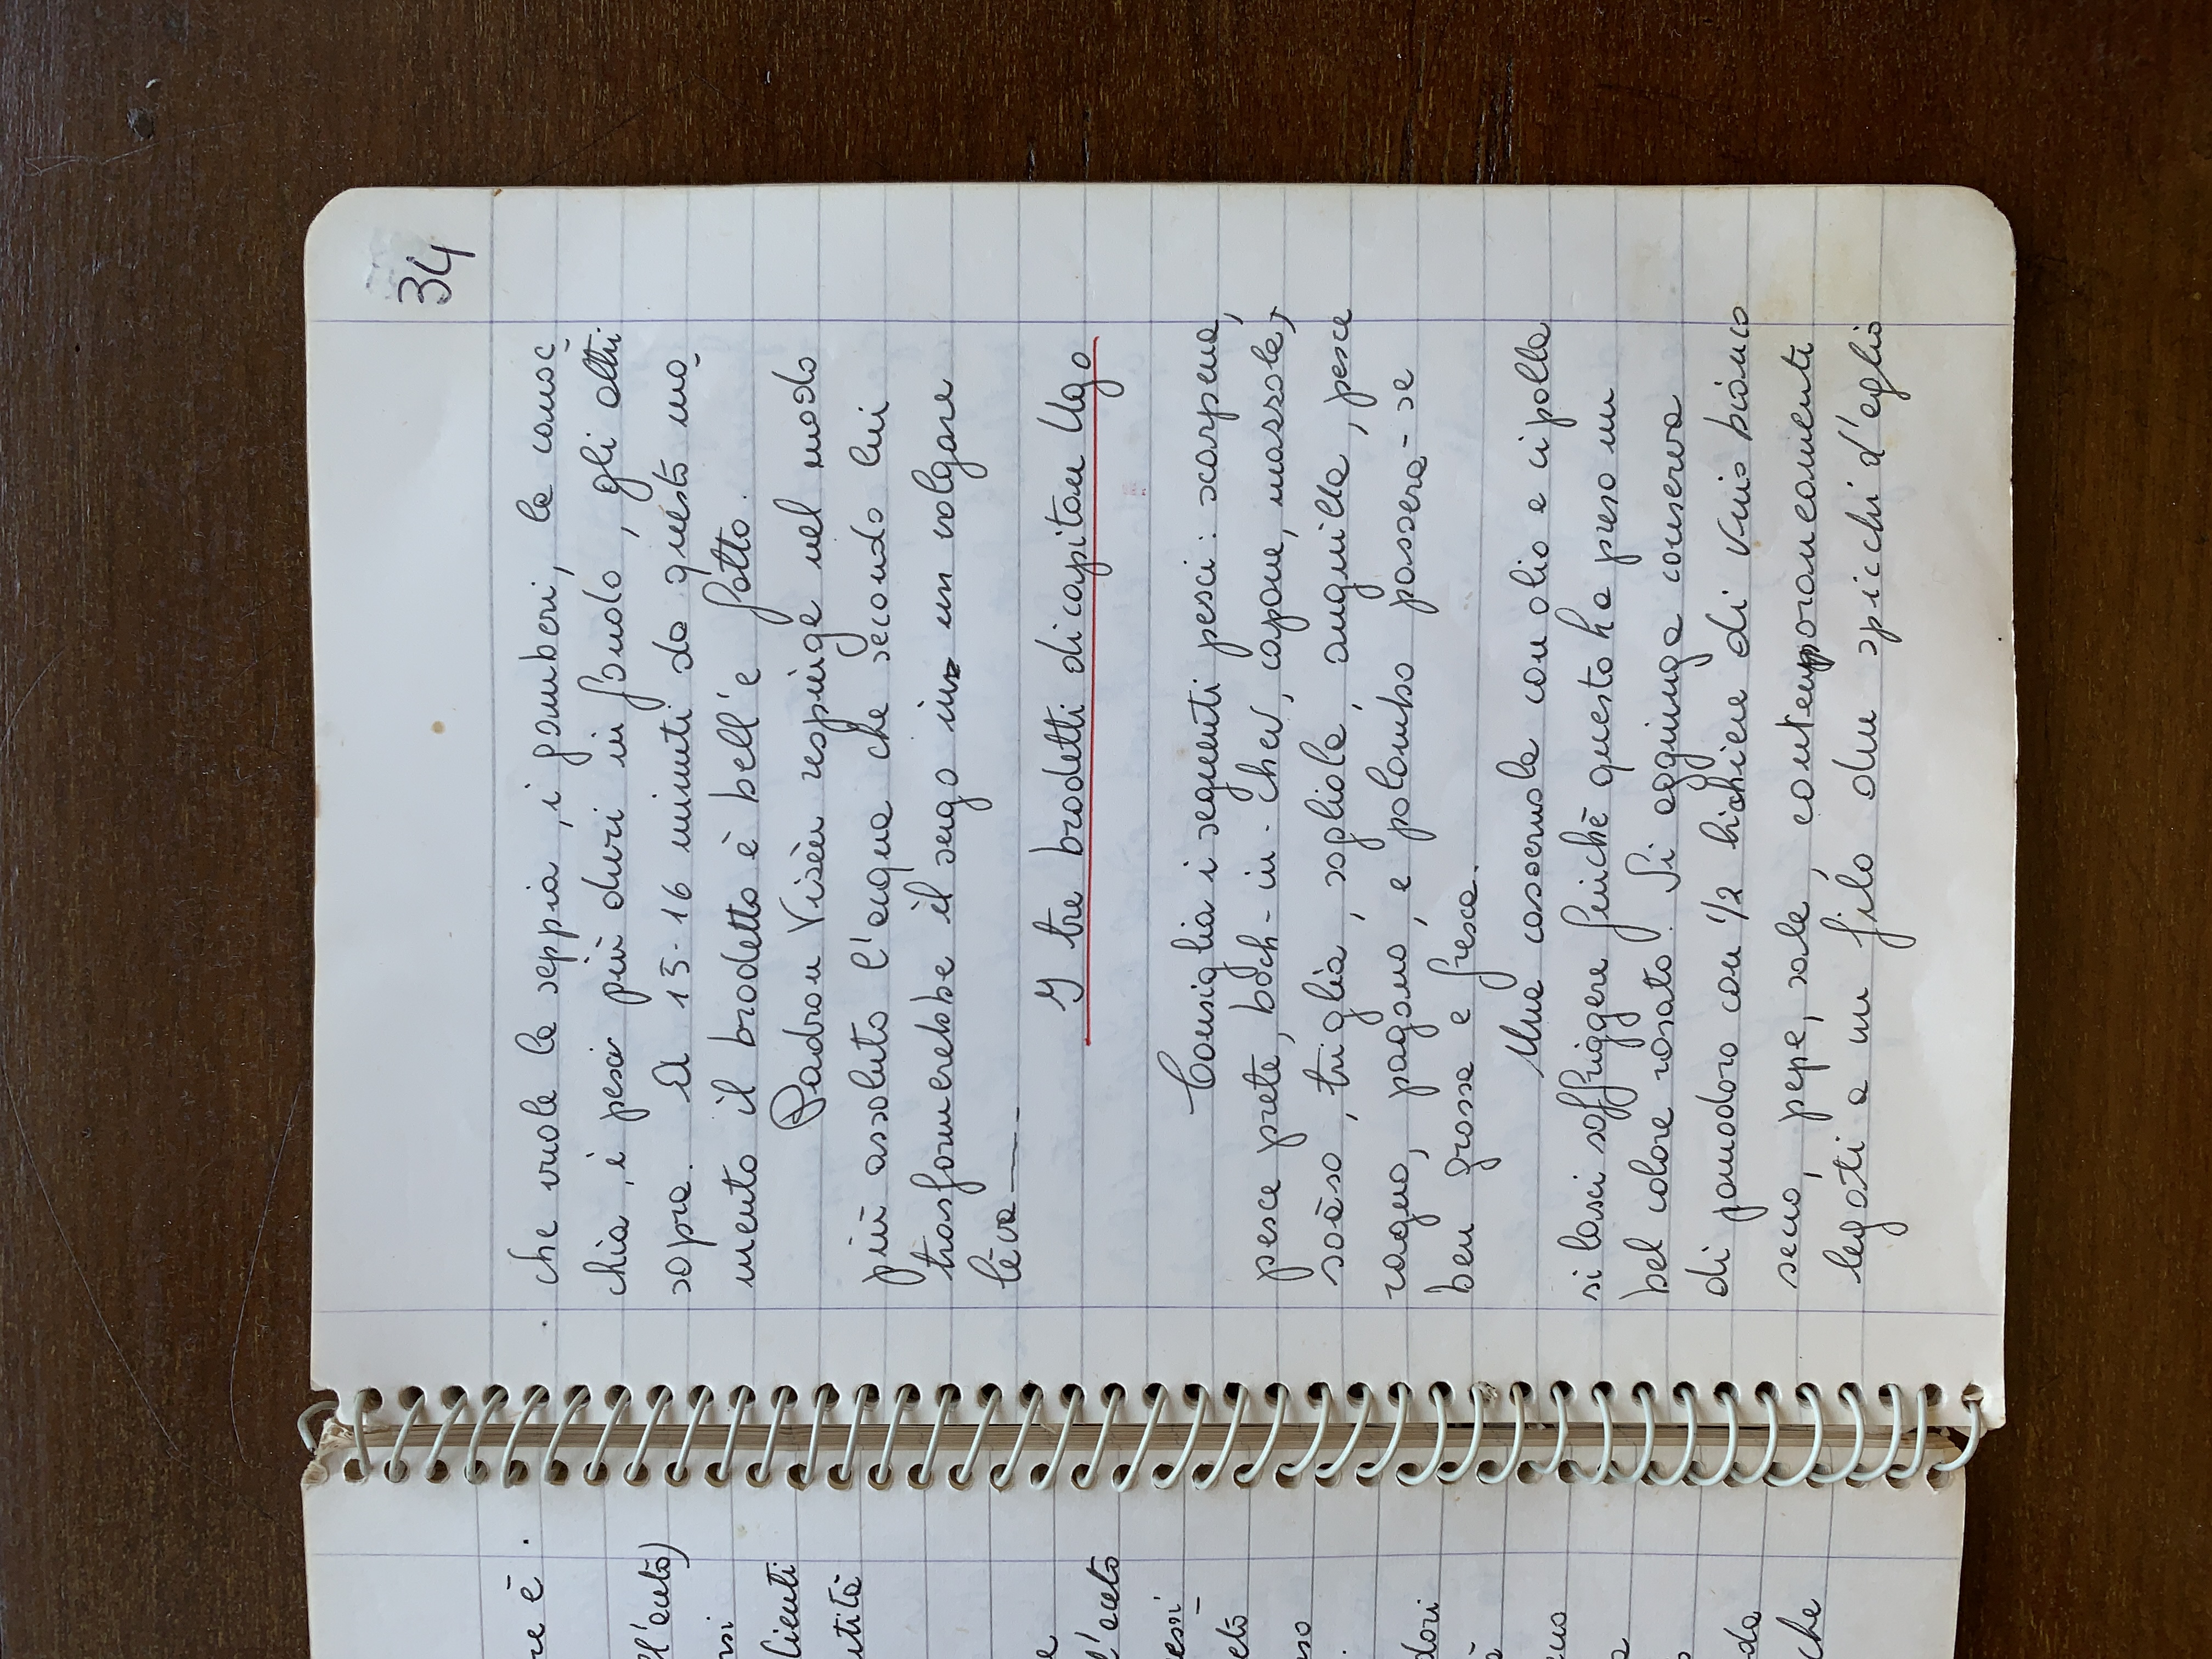 re è
ll'aceto)
rsi
lienti
ntità
e
l'aceto
essi
eto
so
dori
eno
a
da
che
34
che vuole la seppia, i gamberi, la canoc-
chia, i pesci più duri in fondo, gli altri
sopra. A 15-16 minuti da questo mo-
mento il brodetto è bell'e fatto.
Padron Visèn respinge nel modo
più assoluto l'acqua che secondo lui
trasformerebbe il sugo in un volgare
lèva
I tre brodetti di capitan Ugo
Consiglia i seguenti pesci: scarpena,
pesce prete, boch-in-chev, capone, mazzola,
soàso, triglia, sogliola, anguilla, pesce
ragno, pagano, e palombo passera-se
ben grossa e fresca.
Una casseruola con olio e cipolla
si lasci soffriggere finchè questo ha preso un
bel colore rosato. Si aggiunga conserva
di pomodoro con 1/2 bichiere di vino bianco
secco, pepe, sale, contemporaneamente
legati a un filo due spicchi d'aglio